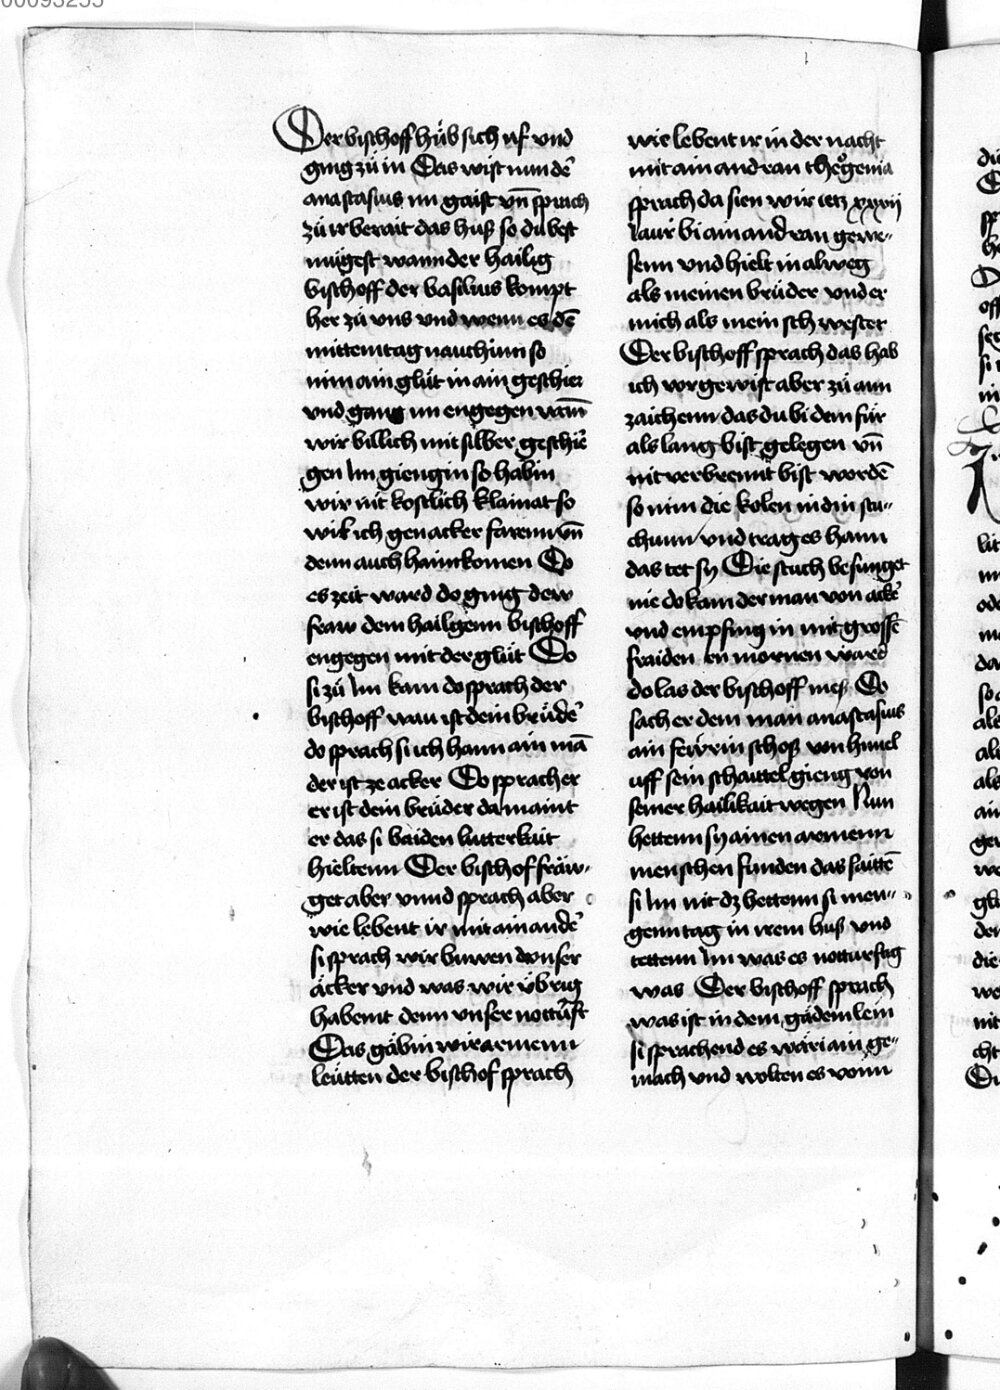 00095255
Der bischoff hüb sich uf vnd
ging zü in Das wist nun dē
anastasius im gaist vn̄ sprach
zü ir berait das huß so du best
mügest wann der hailig
bischoff der basilius kompt
her zü vns vnd wenn es dē
mittemtag nauchinn so
nim ain glüt in ain geschier
vnd gang im engegen wañ
wir billich mit silber geschir
gen Im giengin so habin
wir nit kostlich klainat so
wil ich gen acker farenn vn̄
denn auch haim komen Do
es zeit ward do ging dew
fraw dem hailgenn bischoff
engegen mit der glüt Do
si zü Im kam do sprach der
bischoff wau ist dein brüder
do sprach si ich hann ain mā
der ist ze acker Do sprach er
er ist dein brüder da maint
er das si baiden lutterkait
hieltenn Der bischof fräw-
get aber vnnd sprach aber
wie lebent ir mit ainander
si sprach wir buwen vnser
äcker vnd was wir übrig
habent denn vnser notturft
Das gäbin wir armenn
leütten der bischof sprach
wie lebent ir in der nacht
mit ain andran theogenia
sprach da sien wir ietz xxxvij
Jaur bi ain andran gewe-
senn vnd hielt in alweg
als meinen brüder vnd er
mich als mein schwester
Der bischoff sprach das hab
ich vor gewist aber zü aim
zaichenn das du bi dem für
als lang bist gelegen vn̄
nit verbrennt bist wordē
so nim die kolen in din stu-
chunn vnd trag es hann
das tet sy Die stuch besunget
nie do kam der man von acker
vnd empfing in mit grossē
fraiden en mornen ward
do las der bischoff mess Do
sach er dem man anastasius
ain fewrin schoß von himel
uff sein schaittel gieng von
seiner hailikait wegen Nun
hettenn sy ainen armenn
menschen funden das saittē
si Im nit dz hettenn si men-
genn tag in irem huß vnd
tettenn Im was es notturftig
was Der bischoff sprach
was ist in dem gädemlein
si sprachend es wäri ain ge-
mach vnd wolten es vonn